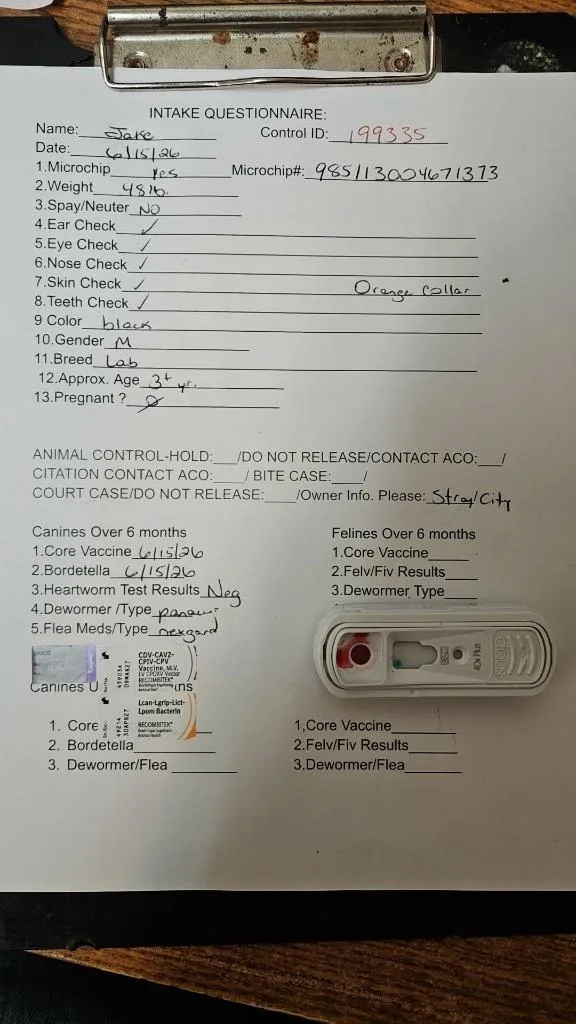 INTAKE QUESTIONNAIRE:
Name: Jake Control ID: 199335
Date: 6/15/26
1.Microchip yes Microchip#: 985113004671373
2.Weight 48lb.
3.Spay/Neuter NO
4.Ear Check ✓
5.Eye Check ✓
6.Nose Check ✓
7.Skin Check ✓ Orange Collar
8.Teeth Check ✓
9 Color black
10.Gender M
11.Breed Lab
12.Approx. Age 3+ yr.
13.Pregnant ?
ANIMAL CONTROL-HOLD:___/DO NOT RELEASE/CONTACT ACO:___/
CITATION CONTACT ACO:___/ BITE CASE:___/
COURT CASE/DO NOT RELEASE:___/Owner Info. Please: Stray/City
Canines Over 6 months Felines Over 6 months
1.Core Vaccine 6/15/26 1.Core Vaccine____
2.Bordetella 6/15/26 2.Felv/Fiv Results____
3.Heartworm Test Results Neg 3.Dewormer Type____
4.Dewormer /Type
5.Flea Meds/Type nexgard
4Dx Plus
CDV-CAV2-
CPIV-CPV
Vaccine, MLV,
LV CPOXV Vector
RECOMBITEK
Canines U ns
Lcan-Lgrip-Lict-
Lpom Bacterin
RECOMBITEK
1. Core 1,Core Vaccine____
2. Bordetella____ 2.Felv/Fiv Results____
3. Dewormer/Flea ____ 3.Dewormer/Flea____